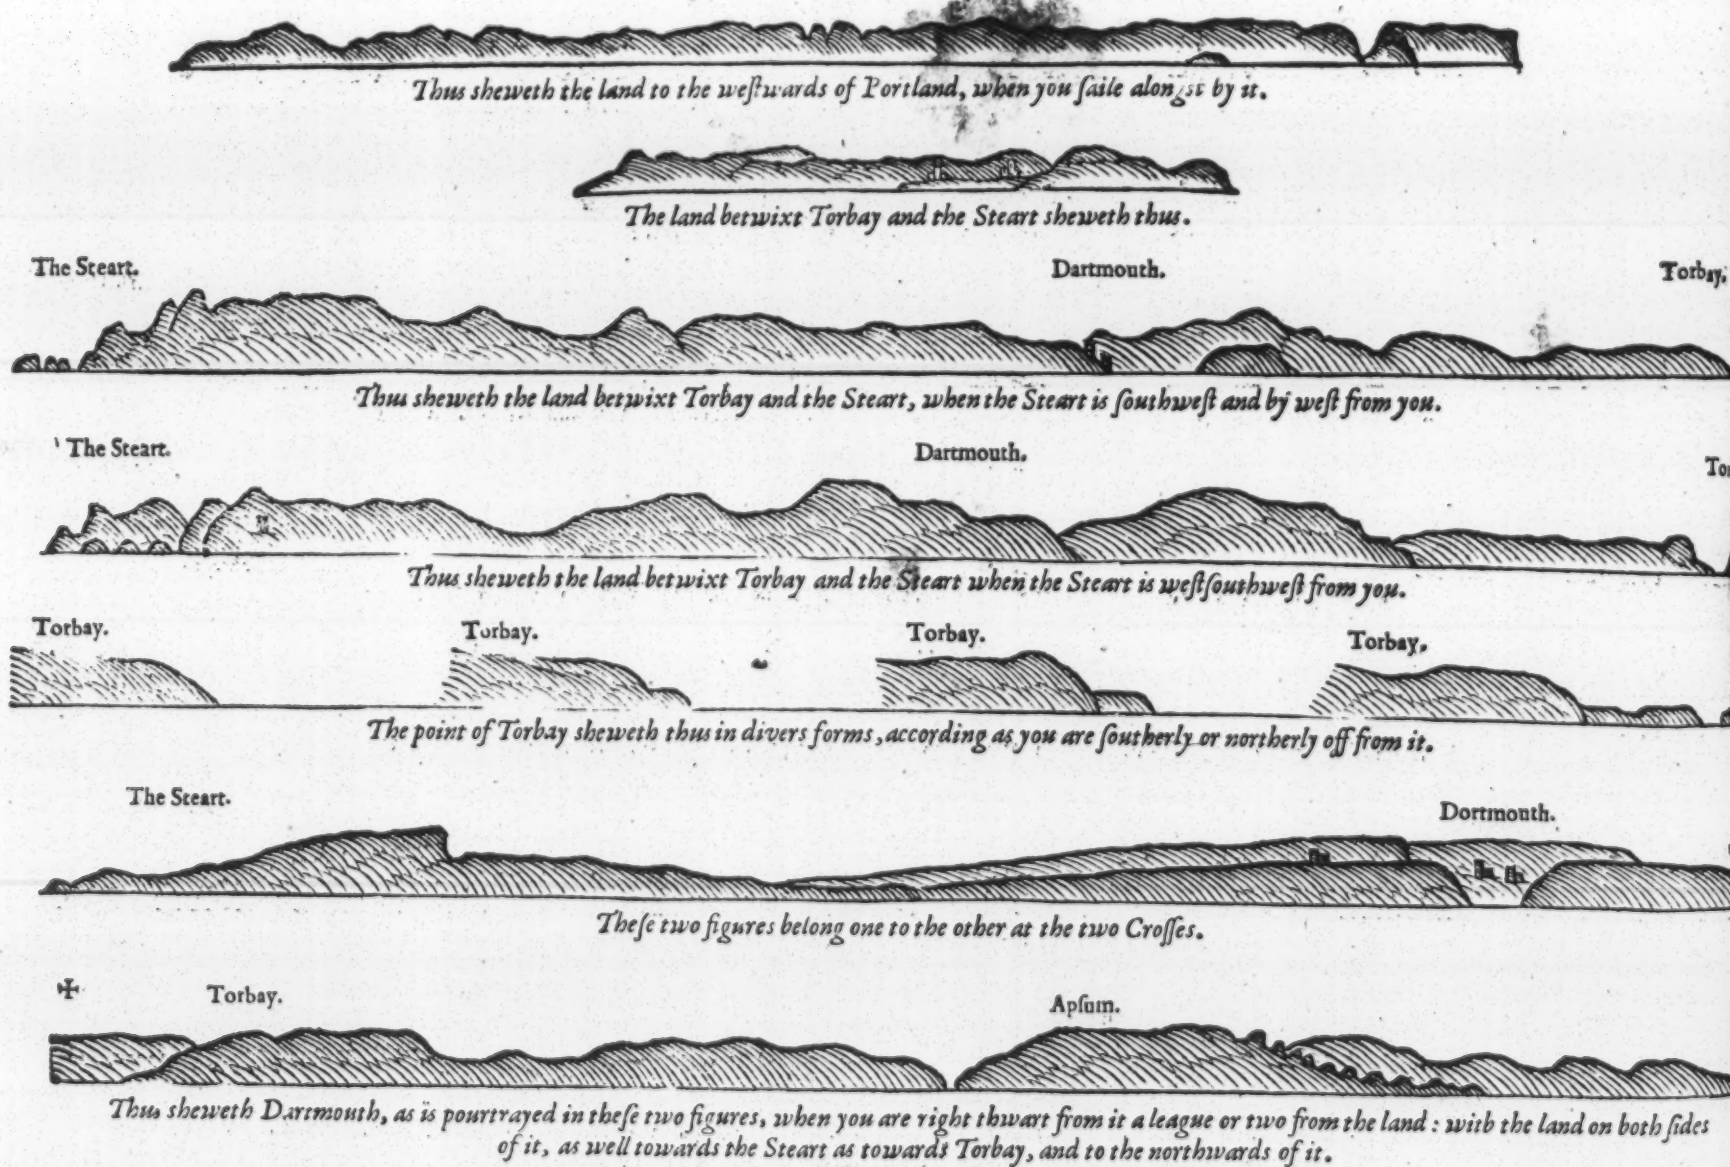 Thus sheweth the land to the weſtwards of Portland, when you ſaile alongst by it.
The land betwixt Torbay and the Steart sheweth thus.
The Steart. Dartmouth. Torbay.
Thus sheweth the land betwixt Torbay and the Steart, when the Steart is ſouthweſt and by weſt from you.
The Steart. Dartmouth.
Thus sheweth the land betwixt Torbay and the Steart when the Steart is weſtſouthweſt from you.
Torbay. Torbay. Torbay. Torbay.
The point of Torbay sheweth thus in divers forms, according as you are ſoutherly or northerly off from it.
The Steart. Dortmouth.
Theſe two figures belong one to the other at the two Croſſes.
✠ Torbay. Apſum.
Thus sheweth Dartmouth, as is pourtrayed in theſe two figures, when you are right thwart from it a league or two from the land : with the land on both ſides
of it, as well towards the Steart as towards Torbay, and to the northwards of it.